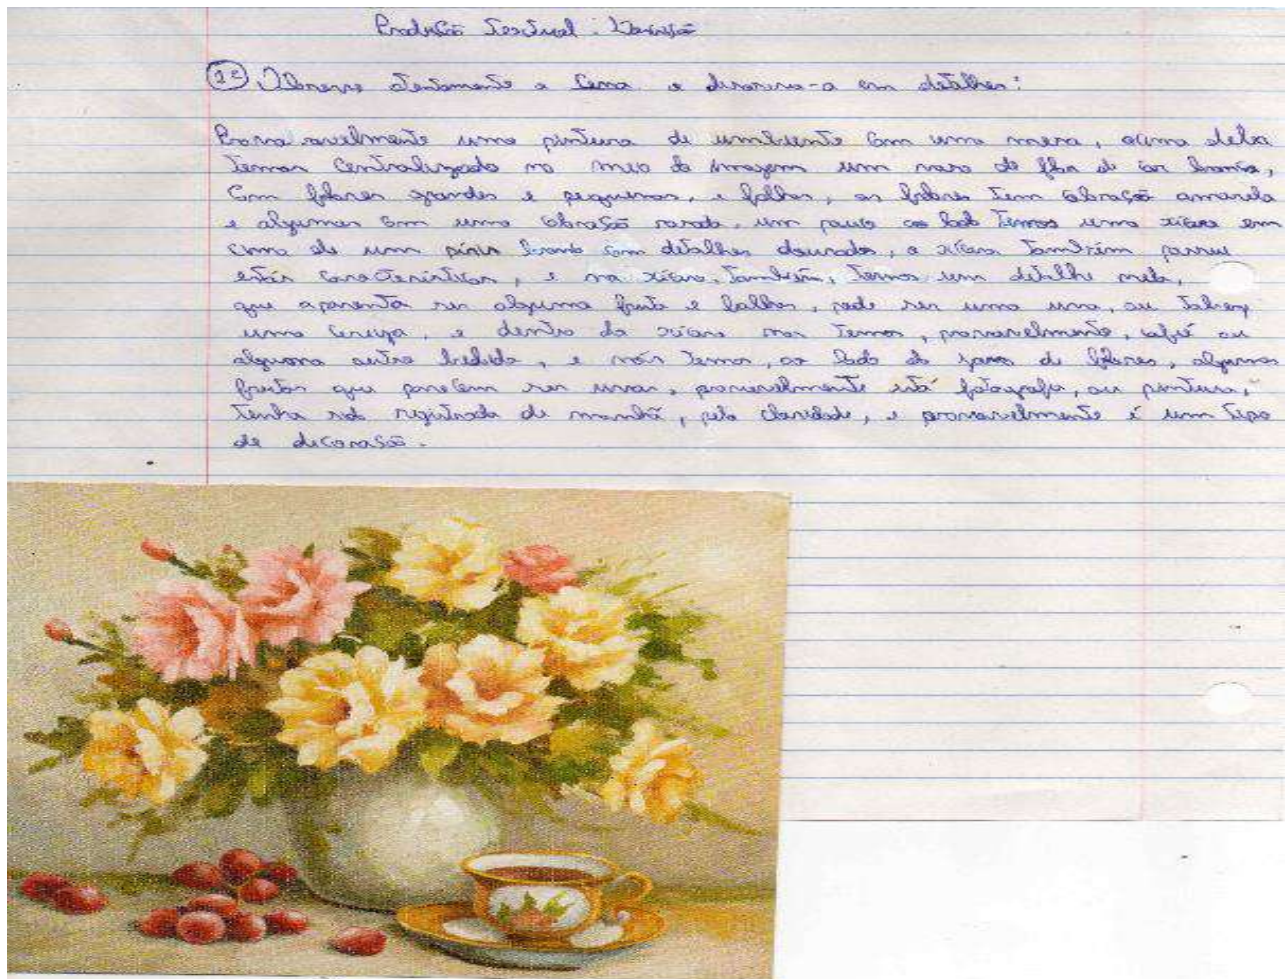 Produção Textual: Descrição
1º Observe atentamente a cena e descreva-a em detalhes:
Provavelmente uma pintura de umbiente com uma mesa, acima dela
temos centralizado no meio da imagem um vaso de flor de cor branca,
com flores grandes e pequenas, e folhas, as flores tem coloração amarela
e algumas com uma coloração rosada, um pouco ao lado temos uma xícara em
cima de um pires branco com detalhes dourados, a xícara também possui
estás características, e na xícara, também, temos um detalhe nela,
que aparenta ser alguma fruta e folhas, pode ser uma uva, ou talvez
uma cereja, e dentro da xícara nos temos, provavelmente, café ou
alguma outra bebida, e nós temos, ao lado do vaso de flores, algumas
frutas que parecem ser uvas, provavelmente está fotografa, ou pintura,
tenha sido registrada de manhã, pela claridade, e provavelmente é um tipo
de decoração.